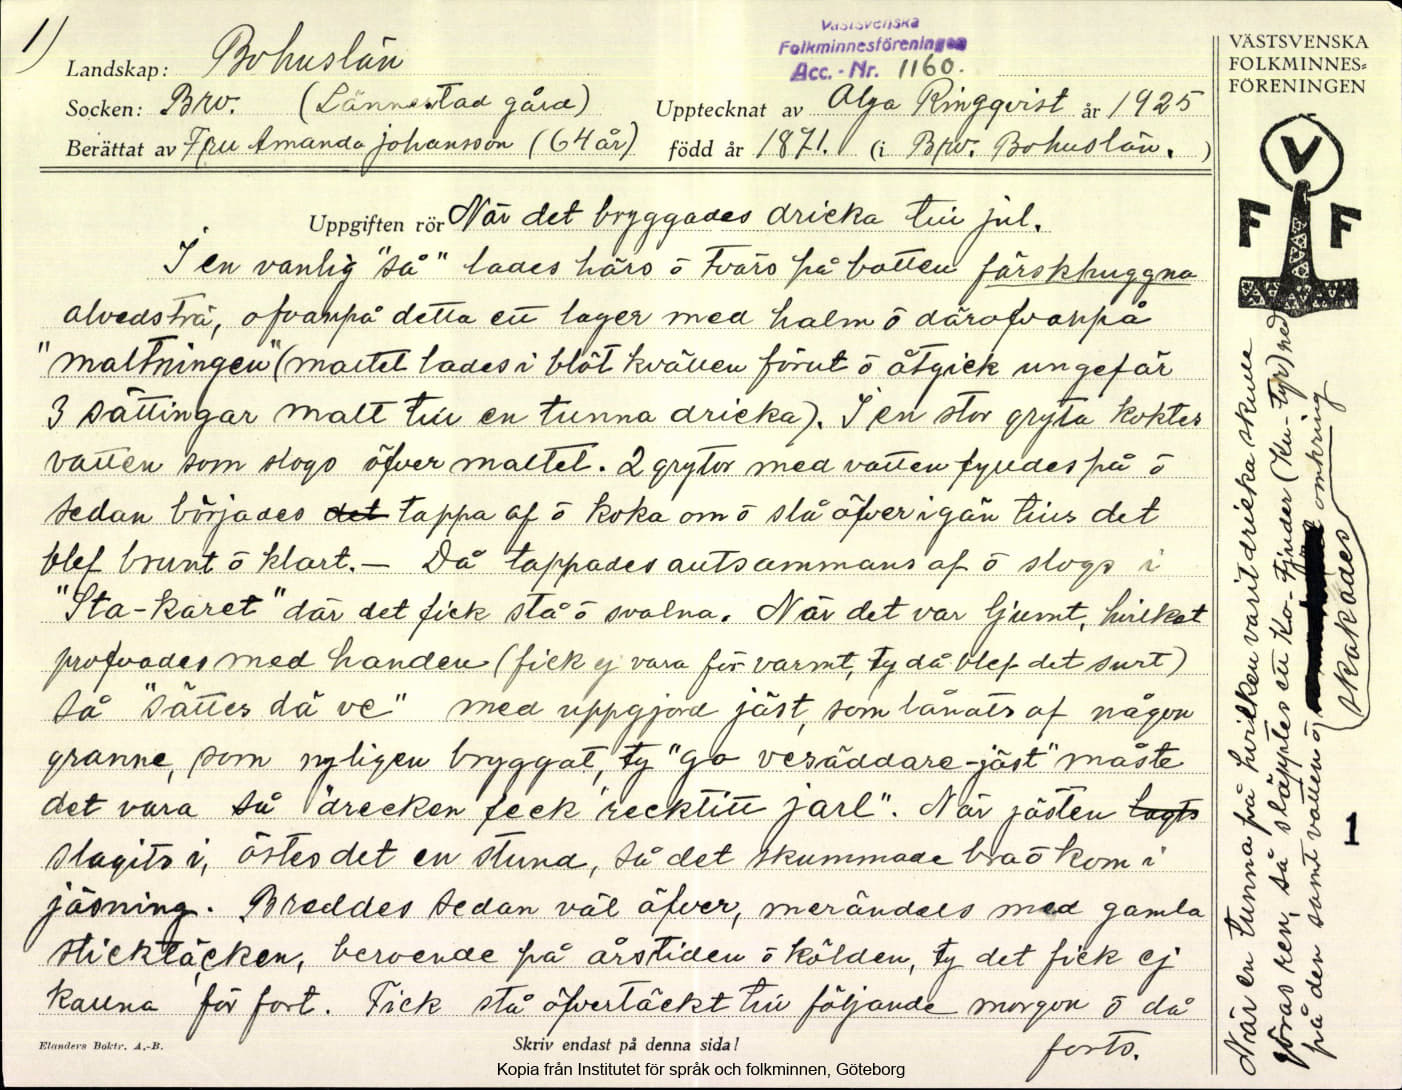 1)
Västsvenska
Folkminnesföreningen
Acc. - Nr. 1160.
Landskap: Bohuslän
Socken: Bro. (Lännestad gård)
Upptecknat av Olga Ringqvist år 1925
Berättat av Fru Amanda Johansson (64 år)
född år 1871. (i Bro. Bohuslän.)
VÄSTSVENSKA
FOLKMINNES-
FÖRENINGEN
V
F F
Uppgiften rör När det bryggades dricka till jul.
I en vanlig "så" lades härs ō tvärs på botten färskhuggna
alvedsträ, ofvanpå detta ett lager med halm ō därofvanpå
"maltningen" (maltet lades i blöt kvällen förut ō åtgick ungefär
3 sättingar malt till en tunna dricka). I en stor gryta koktes
vatten som slogs öfver maltet. 2 grytor med vatten fylldes på ō
sedan börjades det tappa af ō koka om ō slå öfver igän tills det
blef brunt ō klart. — Då tappades altsammans af ō slogs i
"Sta-karet" där det fick stå ō svalna. När det var ljumt, hvilket
profvades med handen (fick ej vara för varmt, ty då blef det surt)
så "sättes dä ve" med uppgjord jäst, som lånats af någon
granne, som nyligen bryggat, ty "go vesäddare-jäst" måste
det vara så "drecken feck recktitt jarl". När jästen lagts
slagits i, östes det en stund, så det skummade bra ō kom i
jäsning. Breddes sedan väl öfver, merändels med gamla
sticktäcken, beroende på årstiden ō kölden, ty det fick ej
kallna för fort. Fick stå öfvertäckt till följande morgon ō då
forts.
När en tunna på hvilken varit dricka skulle
göras ren, så släpptes en Ko-tjuder (Ku-tyr) ned
på den samt vatten ō omkring
skakades
1
Elanders Boktr. A.-B.
Skriv endast på denna sida!
Kopia från Institutet för språk och folkminnen, Göteborg